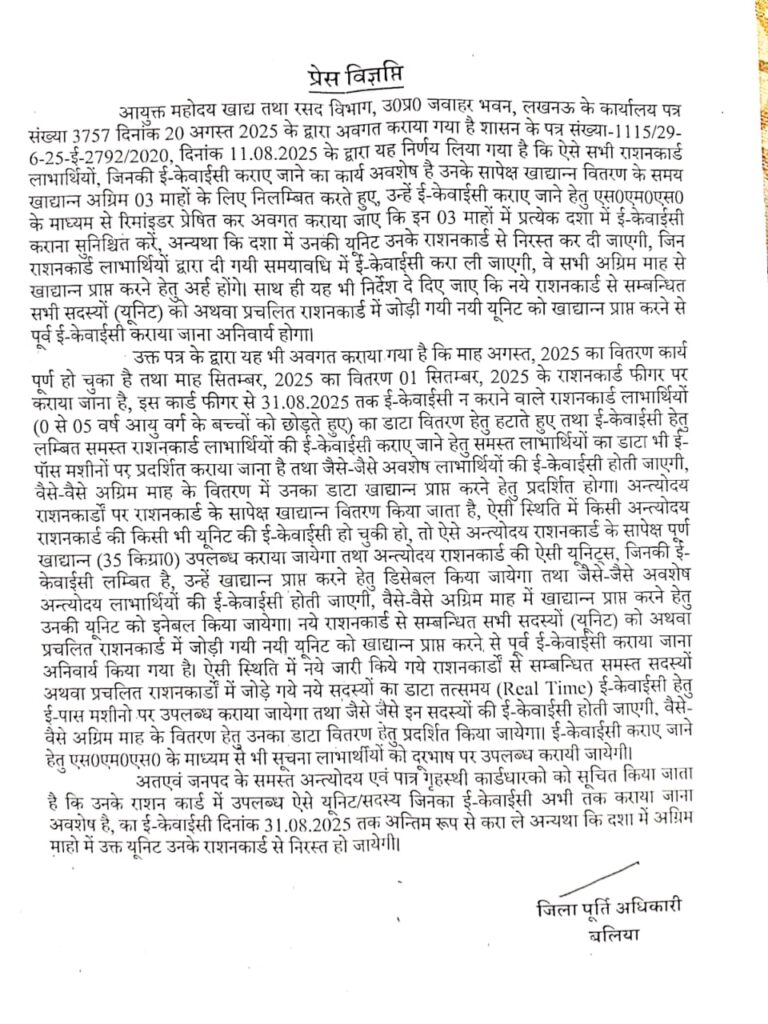 प्रेस विज्ञप्ति
आयुक्त महोदय खाद्य तथा रसद विभाग, उ0प्र0 जवाहर भवन, लखनऊ के कार्यालय पत्र
संख्या 3757 दिनांक 20 अगस्त 2025 के द्वारा अवगत कराया गया है शासन के पत्र संख्या-1115/29-
6-25-ई-2792/2020, दिनांक 11.08.2025 के द्वारा यह निर्णय लिया गया है कि ऐसे सभी राशनकार्ड
लाभार्थियों, जिनकी ई-केवाईसी कराए जाने का कार्य अवशेष है उनके सापेक्ष खाद्यान्न वितरण के समय
खाद्यान्न अग्रिम 03 माहों के लिए निलम्बित करते हुए, उन्हें ई-केवाईसी कराए जाने हेतु एस0एम0एस0
के माध्यम से रिमांइडर प्रेषित कर अवगत कराया जाए कि इन 03 माहों में प्रत्येक दशा में ई-केवाईसी
कराना सुनिश्चित करे, अन्यथा कि दशा में उनकी यूनिट उनके राशनकार्ड से निरस्त कर दी जाएगी, जिन
राशनकार्ड लाभार्थियों द्वारा दी गयी समयावधि में ई-केवाईसी करा ली जाएगी, वे सभी अग्रिम माह से
खाद्यान्न प्राप्त करने हेतु अर्ह होंगे। साथ ही यह भी निर्देश दे दिए जाए कि नये राशनकार्ड से सम्बन्धित
सभी सदस्यों (यूनिट) को अथवा प्रचलित राशनकार्ड में जोड़ी गयी नयी यूनिट को खाद्यान्न प्राप्त करने से
पूर्व ई-केवाईसी कराया जाना अनिवार्य होगा।
उक्त पत्र के द्वारा यह भी अवगत कराया गया है कि माह अगस्त, 2025 का वितरण कार्य
पूर्ण हो चुका है तथा माह सितम्बर, 2025 का वितरण 01 सितम्बर, 2025 के राशनकार्ड फीगर पर
कराया जाना है, इस कार्ड फीगर से 31.08.2025 तक ई-केवाईसी न कराने वाले राशनकार्ड लाभार्थियों
(0 से 05 वर्ष आयु वर्ग के बच्चों को छोड़ते हुए) का डाटा वितरण हेतु हटाते हुए तथा ई-केवाईसी हेतु
लम्बित समस्त राशनकार्ड लाभार्थियों की ई-केवाईसी कराए जाने हेतु समस्त लाभार्थियों का डाटा भी ई-
पॉस मशीनों पर प्रदर्शित कराया जाना है तथा जैसे-जैसे अवशेष लाभार्थियों की ई-केवाईसी होती जाएगी,
वैसे-वैसे अग्रिम माह के वितरण में उनका डाटा खाद्यान्न प्राप्त करने हेतु प्रदर्शित होगा। अन्त्योदय
राशनकार्डों पर राशनकार्ड के सापेक्ष खाद्यान्न वितरण किया जाता है, ऐसी स्थिति में किसी अन्त्योदय
राशनकार्ड की किसी भी यूनिट की ई-केवाईसी हो चुकी हो, तो ऐसे अन्त्योदय राशनकार्ड के सापेक्ष पूर्ण
खाद्यान्न (35 किग्रा0) उपलब्ध कराया जायेगा तथा अन्त्योदय राशनकार्ड की ऐसी यूनिट्स, जिनकी ई-
केवाईसी लम्बित है, उन्हें खाद्यान्न प्राप्त करने हेतु डिसेबल किया जायेगा तथा जैसे-जैसे अवशेष
अन्त्योदय लाभार्थियों की ई-केवाईसी होती जाएगी, वैसे-वैसे अग्रिम माह में खाद्यान्न प्राप्त करने हेतु
उनकी यूनिट को इनेबल किया जायेगा। नये राशनकार्ड से सम्बन्धित सभी सदस्यों (यूनिट) को अथवा
प्रचलित राशनकार्ड में जोड़ी गयी नयी यूनिट को खाद्यान्न प्राप्त करने से पूर्व ई-केवाईसी कराया जाना
अनिवार्य किया गया है। ऐसी स्थिति में नये जारी किये गये राशनकार्डों से सम्बन्धित समस्त सदस्यों
अथवा प्रचलित राशनकार्डों में जोड़े गये नये सदस्यों का डाटा तत्समय (Real Time) ई-केवाईसी हेतु
ई-पास मशीनो पर उपलब्ध कराया जायेगा तथा जैसे जैसे इन सदस्यों की ई-केवाईसी होती जाएगी, वैसे-
वैसे अग्रिम माह के वितरण हेतु उनका डाटा वितरण हेतु प्रदर्शित किया जायेगा। ई-केवाईसी कराए जाने
हेतु एस0एम0एस0 के माध्यम से भी सूचना लाभार्थीयों को दूरभाष पर उपलब्ध करायी जायेगी।
अतएवं जनपद के समस्त अन्त्योदय एवं पात्र गृहस्थी कार्डधारको को सूचित किया जाता
है कि उनके राशन कार्ड में उपलब्ध ऐसे यूनिट/सदस्य जिनका ई-केवाईसी अभी तक कराया जाना
अवशेष है, का ई-केवाईसी दिनांक 31.08.2025 तक अन्तिम रूप से करा ले अन्यथा कि दशा में अग्रिम
माहो में उक्त यूनिट उनके राशनकार्ड से निरस्त हो जायेगी।
जिला पूर्ति अधिकारी
बलिया